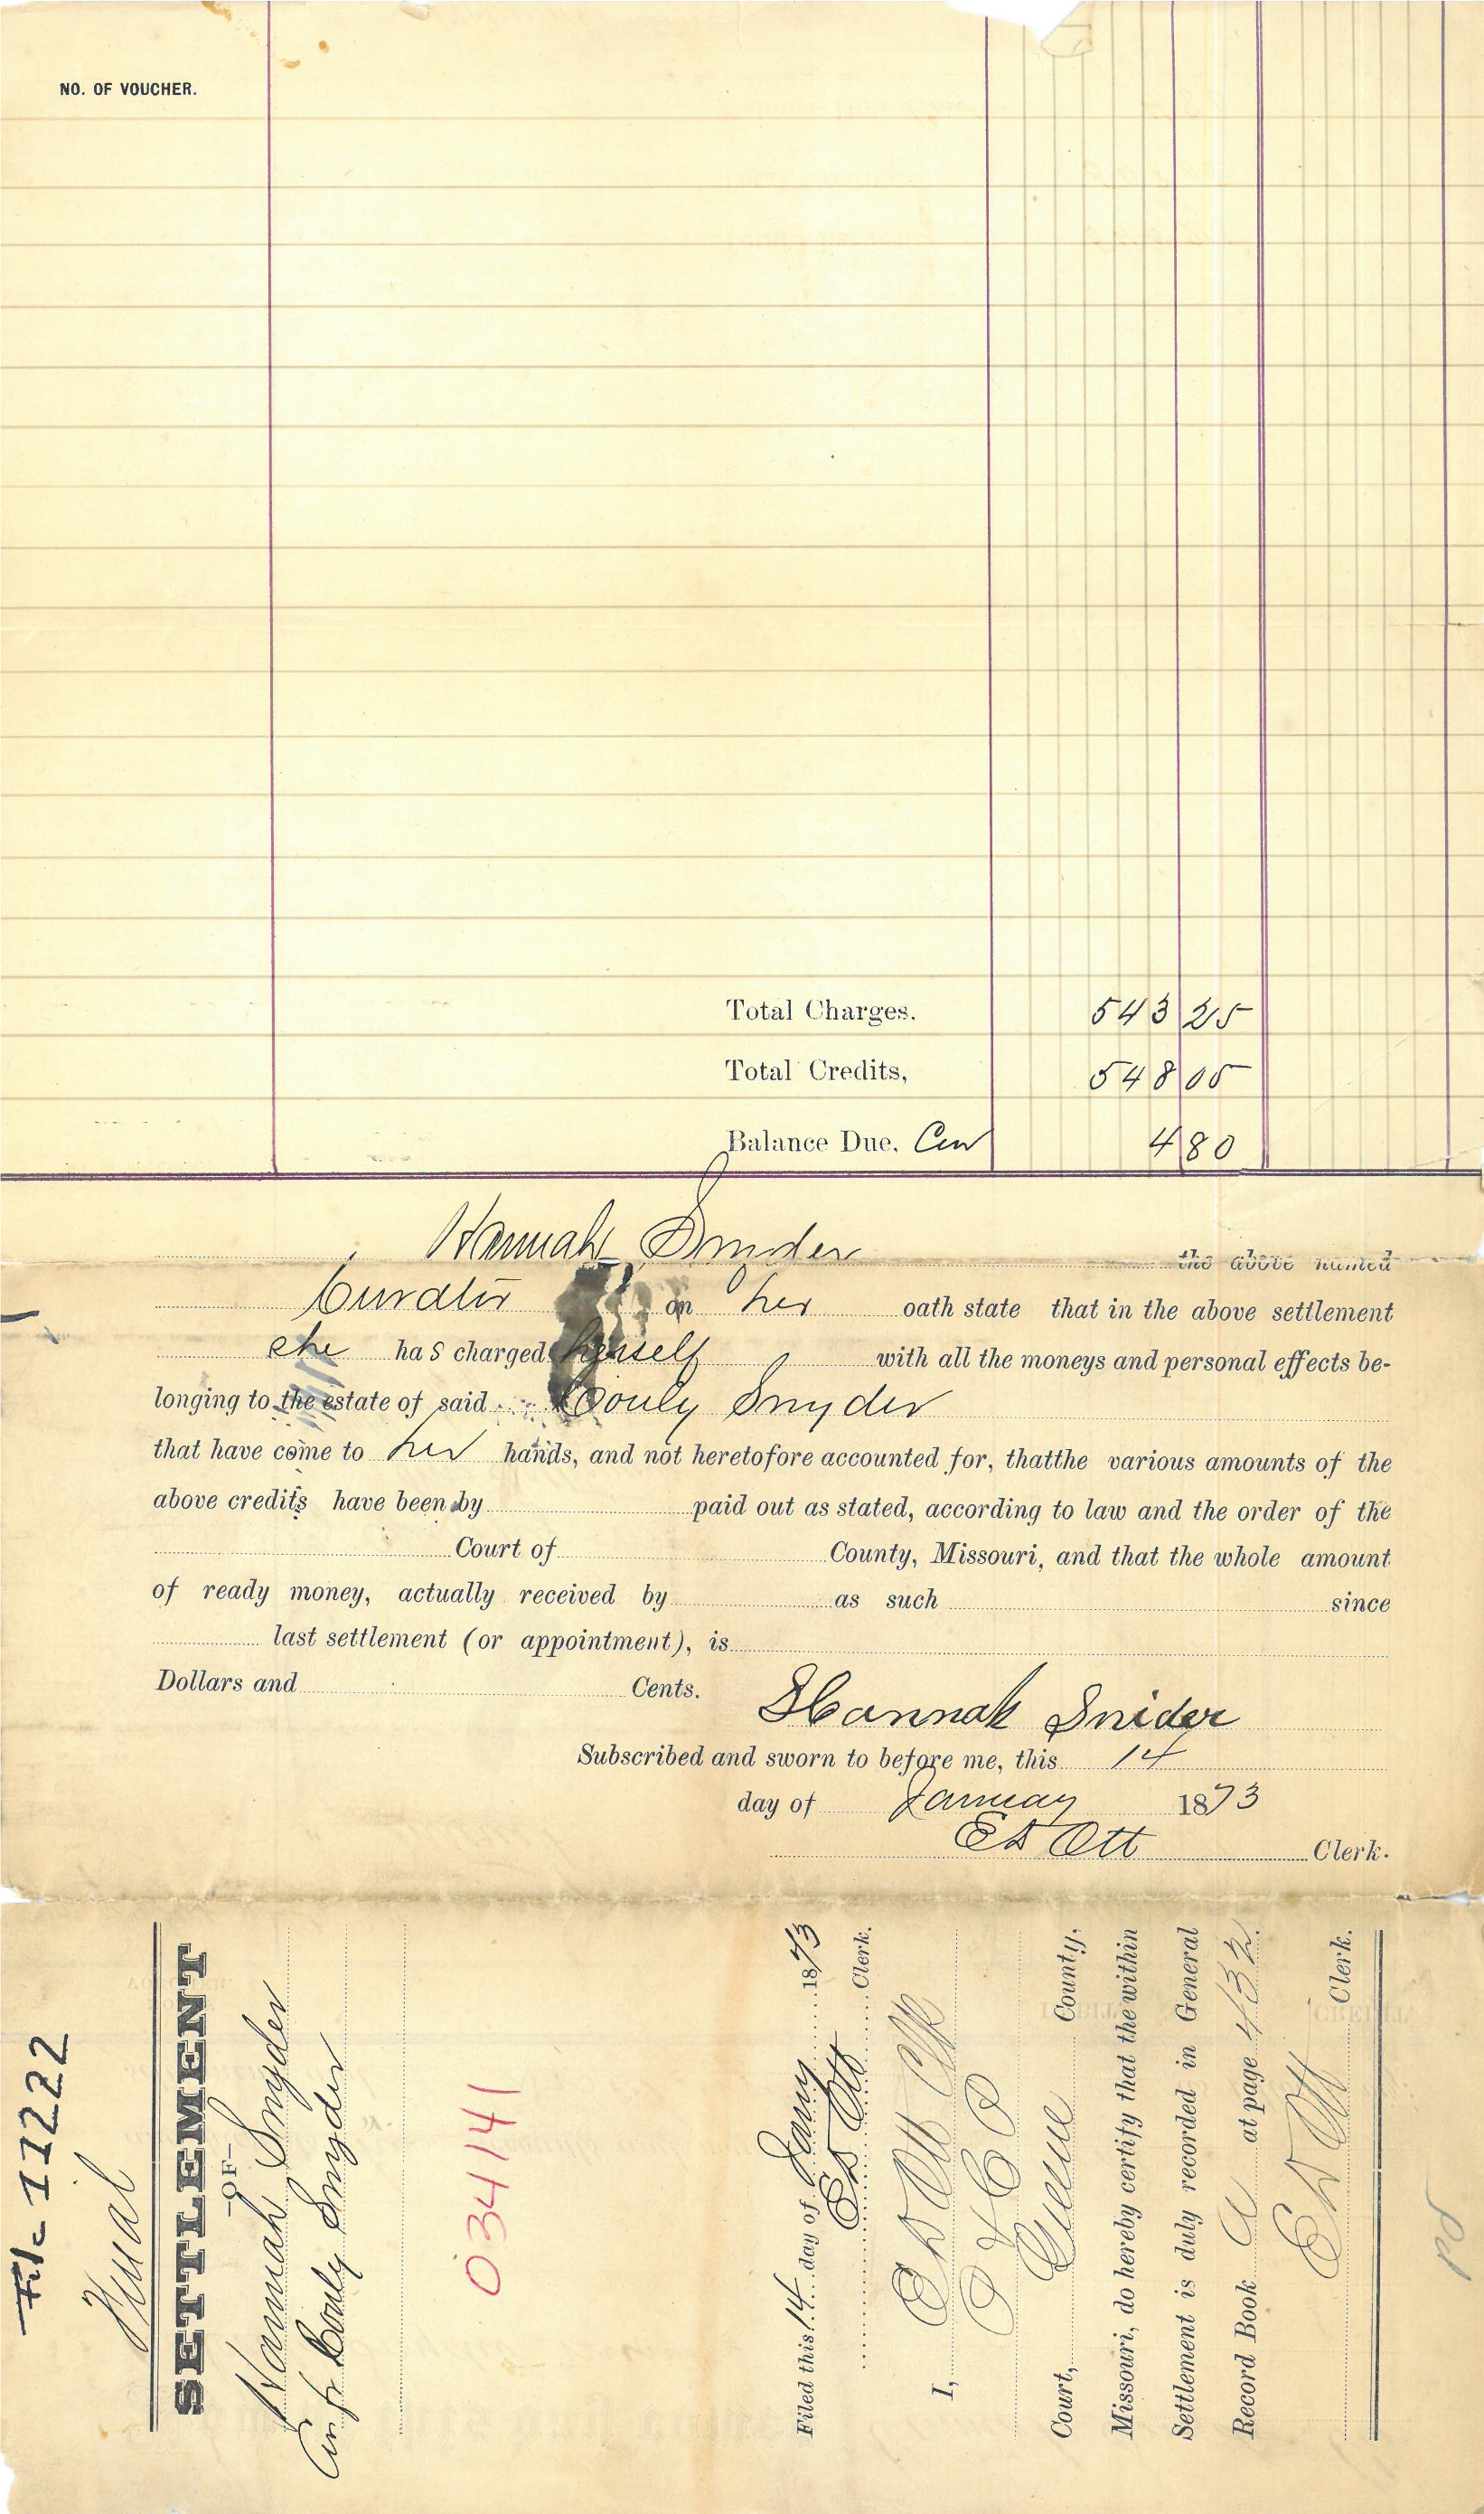 NO. OF VOUCHER.
Total Charges. 543 25
Total Credits, 548 05
Balance Due, Cur 4 80
Hannah Snyder the above named
Curator on her oath state that in the above settlement
she has charged herself with all the moneys and personal effects be-
longing to the estate of said Couly Snyder
that have come to her hands, and not heretofore accounted for, thatthe various amounts of the
above credits have been by paid out as stated, according to law and the order of the
Court of County, Missouri, and that the whole amount
of ready money, actually received by as such since
last settlement (or appointment), is
Dollars and Cents.
Hannah Snider
Subscribed and sworn to before me, this 14
day of January 1873
E D Ott Clerk.
File 11222
Final
SETTLEMENT
—OF—
Hannah Snyder
Cur for Couly Snyder
034141
Filed this 14 day of Jany 1873
E D Ott Clerk.
I, E D Ott Clk
Court, Greene County,
Missouri, do hereby certify that the within
Settlement is duly recorded in General
Record Book A at page 432.
E D Ott Clerk.
Pd